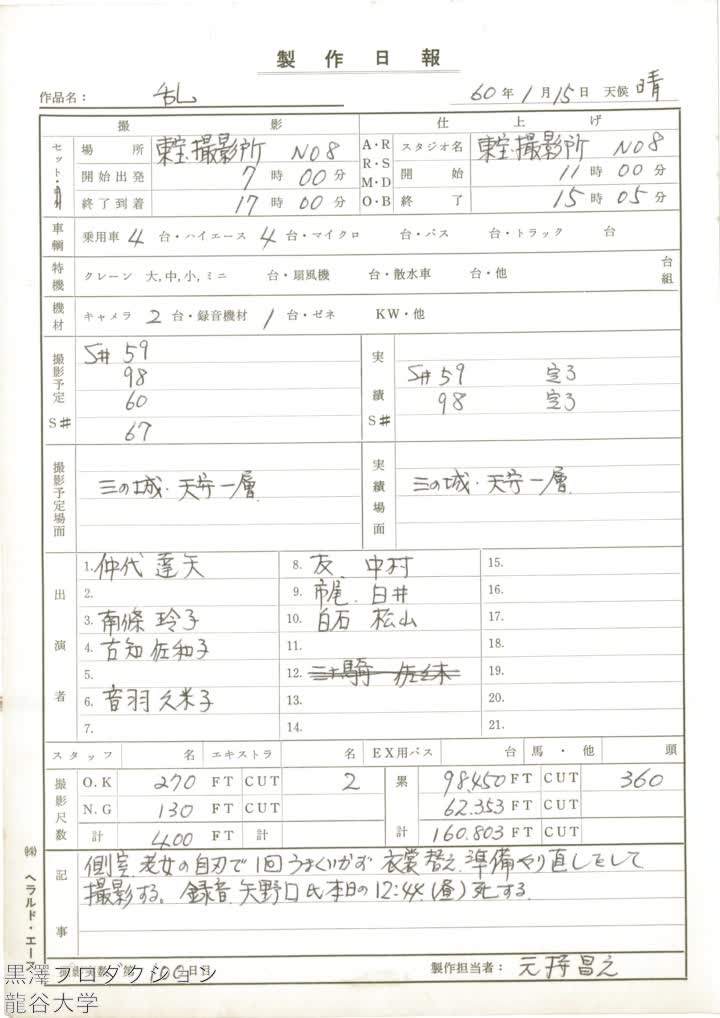 製作日報
作品名： 乱 60年1月15日 天候 晴
撮影 仕上げ
セット・ 場所 東宝撮影所 NO8 A・R スタジオ名 東宝撮影所 NO8
開始出発 7時00分 R・S M・D 開始 11時00分
終了到着 17時00分 O・B 終了 15時05分
車輌 乗用車 4台・ハイエース 4台・マイクロ 台・バス 台・トラック 台
特機 クレーン 大,中,小,ミニ 台・扇風機 台・散水車 台・他 台組
機材 キャメラ 2台・録音機材 1台・ゼネ KW・他
撮影予定 S# 実績 S#
S# 59
98
60
67
S# 59 定3
98 定3
撮影予定場面 三の城・天守一層 実績場面 三の城・天守一層
出演者
1. 仲代達矢 8. 友 中村 15.
2. 9. 市尾 白井 16.
3. 南條玲子 10. 白石 松山 17.
4. 古知佐和子 11. 18.
5. 12. 三十騎 佐々木 19.
6. 音羽久米子 13. 20.
7. 14. 21.
スタッフ 名 エキストラ 名 EX用バス 台 馬・他 頭
撮影尺数 O.K 270 FT CUT 2 累計 98.450 FT CUT 360
N.G 130 FT 62.353 FT CUT
計 400 FT 計 160.803 FT CUT
記事 側室、老女の自刃で1回うまくいかず 衣裳替え、準備やり直しをして
撮影する。 録音 矢野口氏本日の12:44(昼)死する。
撮影実数 第100日目 製作担当者： 元持昌之
㈱ヘラルド・エース
黒澤プロダクション
龍谷大学